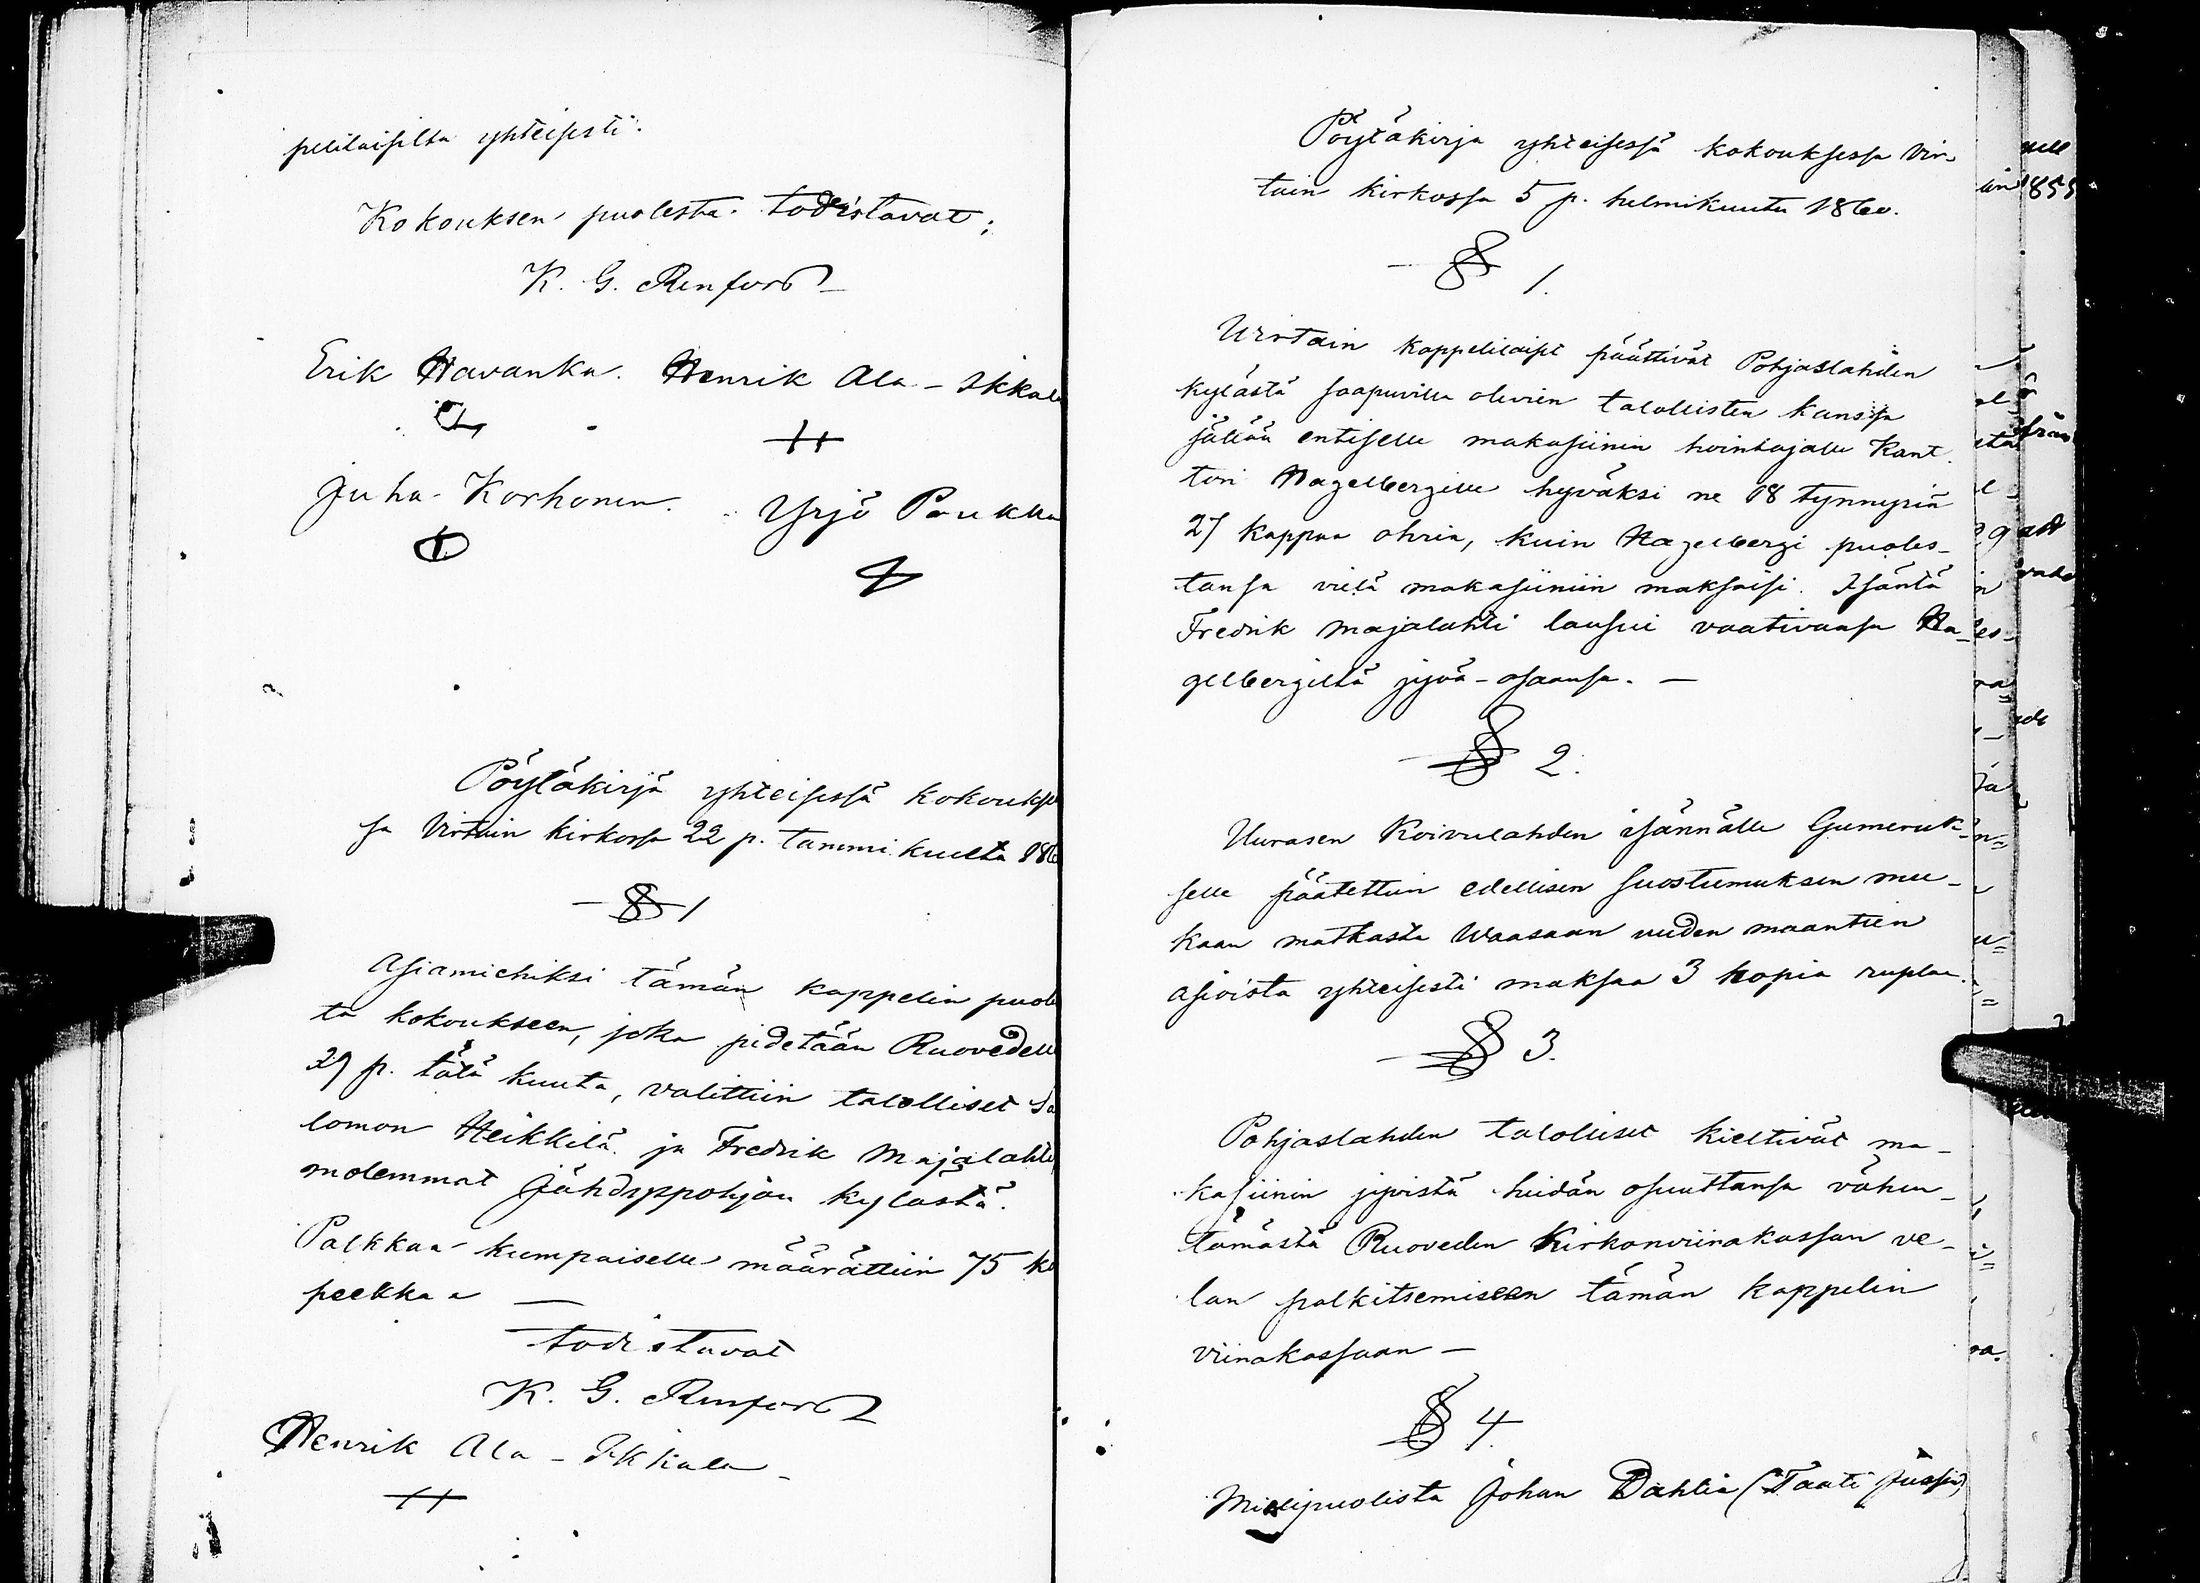 pelilaisilta yhteisesti.
Kokouksen puolesta todistavat;
K. G. Renfors
Erik Havanka. Henrik Ala-Ikkala
Juha Korhonen. Yrjö Paukku
Pöytäkirja yhteisessä kokoukse
sa Virtain kirkossa 22 p. tammikuulta 186
§ 1
Asiamiehiksi tämän kappelin puoles
ta kokoukseen, joka pidetään Ruovedellä
29 p. tätä kuuta, valittiin talolliset Sa
lomon Heikkilä ja Fredrik Majalahti
molemmat Jähdyspohjan kylästä.
Palkkaa kumpaiselle määrättiin 75 ko
peekkaa —
todistavat
K. G. Renfors
Henrik Ala-Ikkala
Pöytäkirja yhteisessä kokouksessa Vir-
tain kirkossa 5 p. helmikuuta 1860.
§ 1.
Virtain kappelilaiset päättivät Pohjaslahden
kylästä saapuvilla olevien talollisten kanssa
jättää entiselle makasiinin hointajalle Kant
tori Hagelbergille hyväksi ne 18 tynnyriä
27 kappaa ohria, kuin Hagelbergi puoles-
tansa vielä makasiiniin maksaisi. Isäntä
Fredrik Majalahti lausui vaativansa Ha-
gelbergiltä jyvä-osaansa. —
§ 2.
Uurasen Koivulahden isännälle Gumeruk-
selle päätettiin edellisen suostumuksen mu-
kaan matkasta Waasaan uuden maantien
asioista yhteisesti maksaa 3 hopia ruplaa.
§ 3.
Pohjaslahden talolliset kieltivät ma-
kasiinin jyvistä heidän osuuttansa vähen-
tämästä Ruoveden Kirkonviinakassan ve-
lan palkitsemiseen tämän kappelin
viinakassaan —
§ 4.
Mielipuolista Johan Dahlia (Taati Jussia)